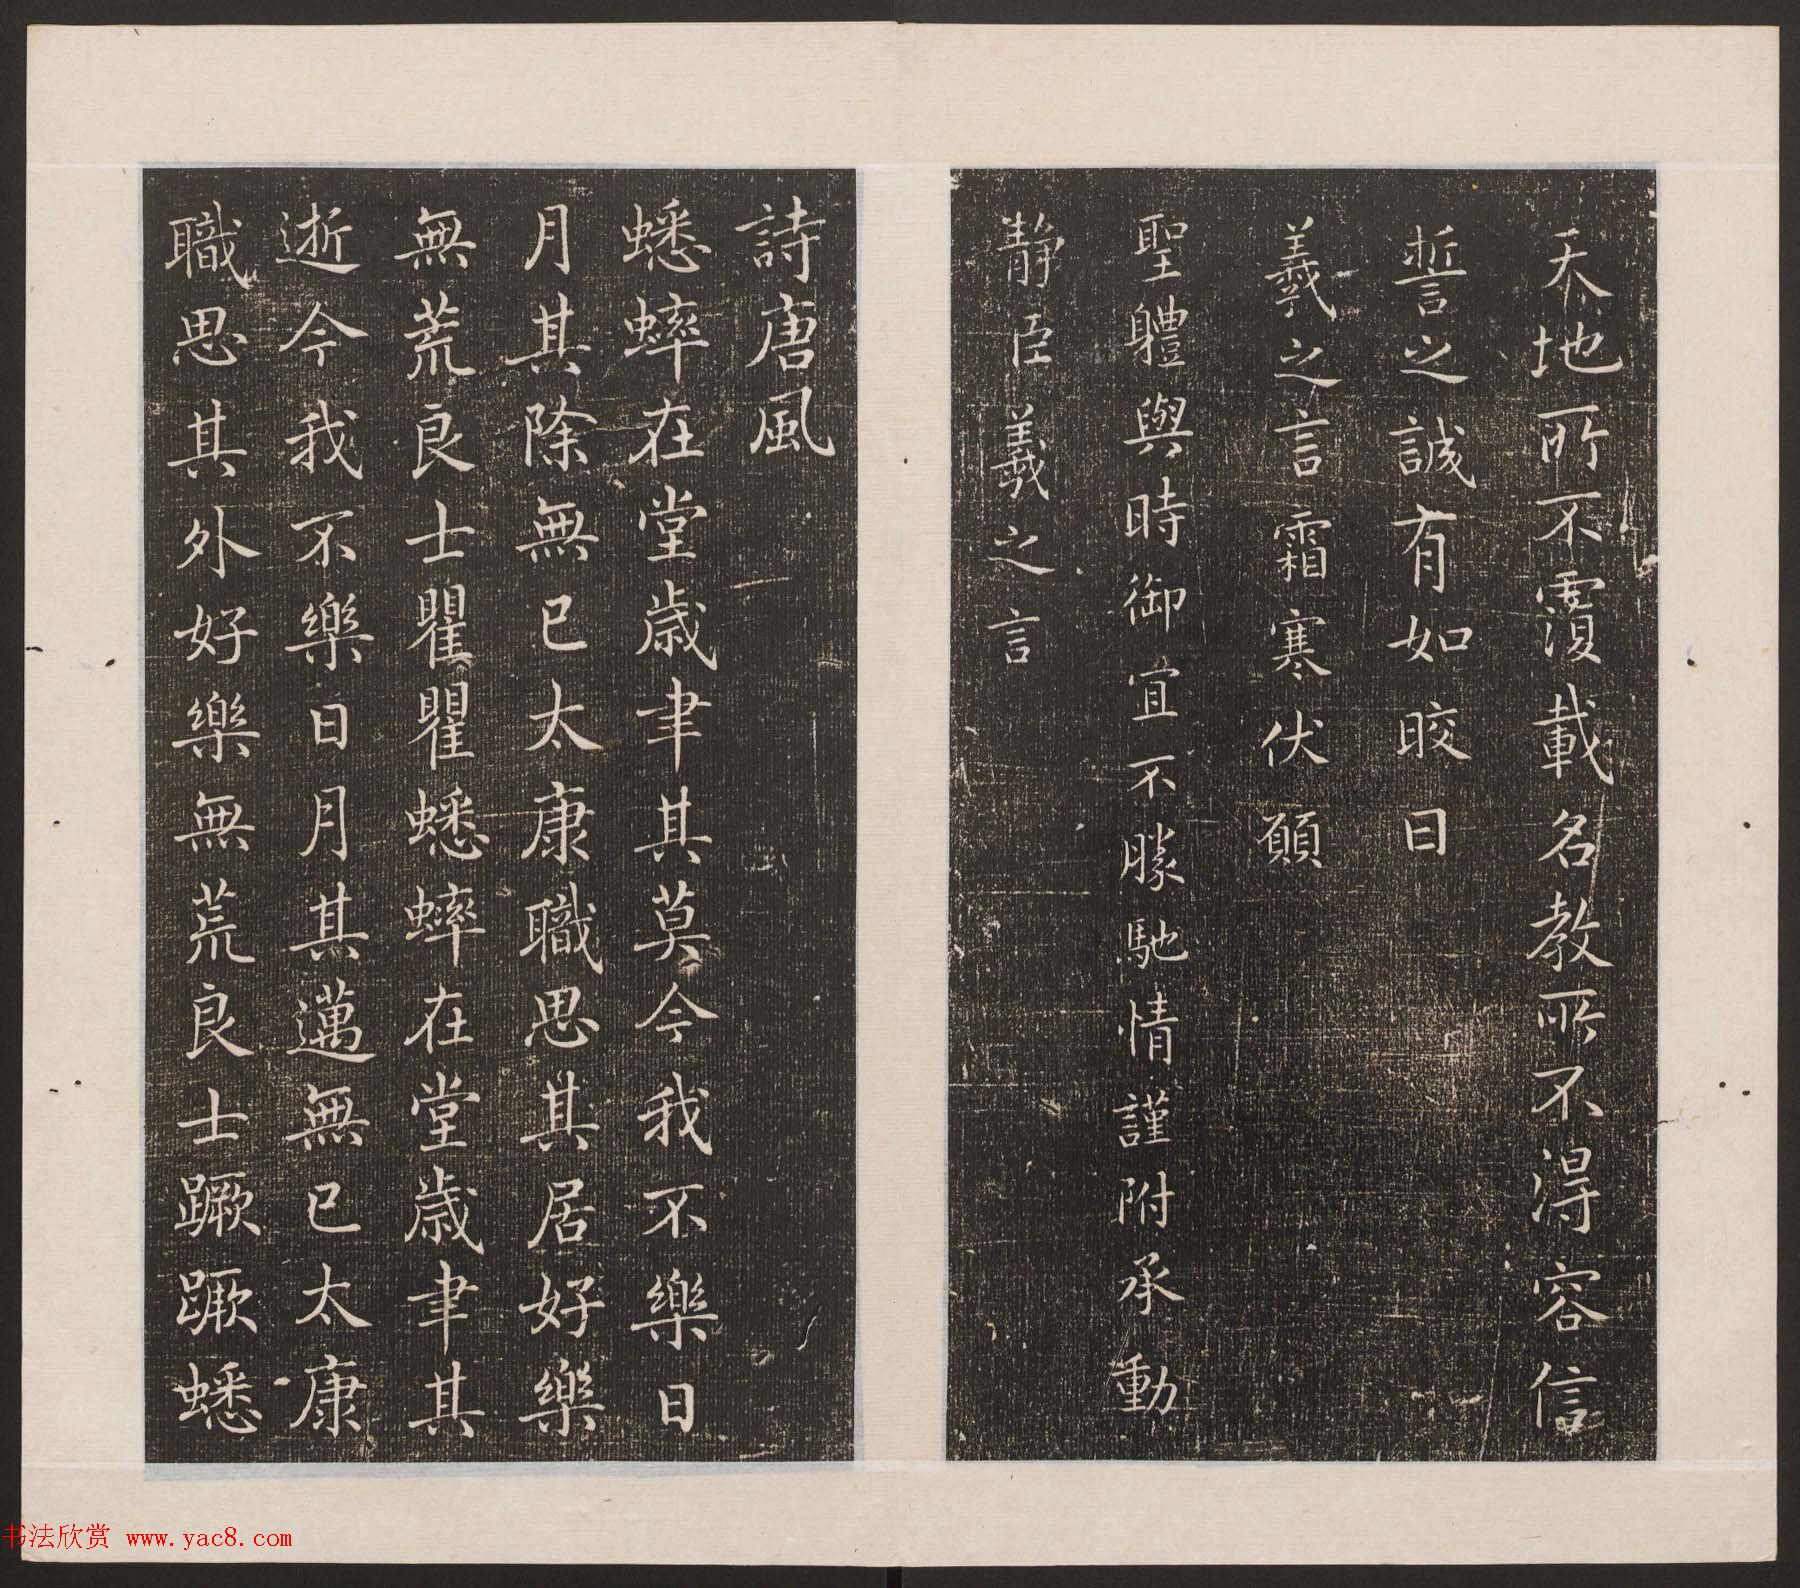 天地所不覆載名教所不得容信
誓之誠有如皎日
羲之言霜寒伏願
聖體與時御宜不勝馳情謹附承動
靜臣羲之言
詩唐風
蟋蟀在堂歲聿其莫今我不樂日
月其除無已太康職思其居好樂
無荒良士瞿瞿蟋蟀在堂歲聿其
逝今我不樂日月其邁無已太康
職思其外好樂無荒良士蹶蹶蟋
书法欣赏 www.yac8.com